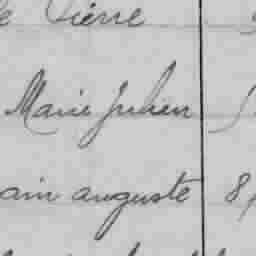 Pierre
Marie Julien
ain auguste 8